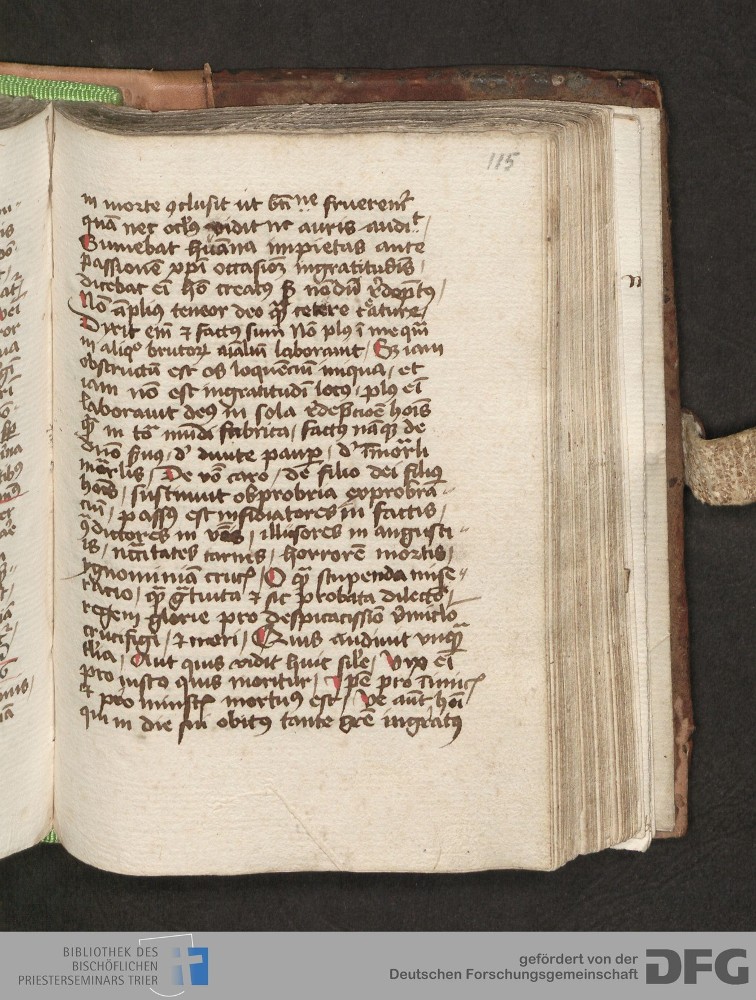 115
in morte ↄclusit ut bn̄ ne fruerent᷑
quā nec ocl̓us vidit nc̄ auris audit
Sumebat hūana impietas ante
passionē xp̄i occasionē ingratitudīs
dicebat eī hō creatus sꝫ nōdū rdēptus
Nō āplius teneor deo qͣꝫ cetere cͣature
Dixit em̄ ⁊ factus sum Nō plus ī me qͣꝫ
in aliqͦ brutoꝝ aīaliū laborauit Sꝫ iam
obstructū est os loquenciū iniqua et
iam nō est ingratitudī locus plus eī
laborauit deus in sola rdēpcioē hoīs
qͣꝫ in tōͣ mūdi fabrica factus nāqꝫ de
dn̄o suus dͤ diuite paup̲ dͤ īmortͣli
mortͣlis De vͦbō caro de filio dei filius
hoīs sustinuit obprobria exprobrā
ciū passus est insidiatores in factis
ↄ̄dictores in vͦbis illusores in angusti
is nccitates carnis horrorē mortis
ygnominiā crucis O qͣꝫ stupenda mise
racio qͣꝫ gͣtuita ⁊ sic probata dilectō
regem glorie pro despicatissīo v̓miclōͦ
crucifigi ⁊ mori Quis audiuit vnqͣꝫ
tlia Aut quis vidit huic sil̓e Vix eī
pro iusto quis moritur Ipē pro īimicis
⁊ pro iniustis mortuus est Ve aūt hoī
qui in die sui obitus tante gͣcie ingratus
BIBLIOTHEK DES
BISCHÖFLICHEN
PRIESTERSEMINARS TRIER
gefördert von der
Deutschen Forschungsgemeinschaft
DFG